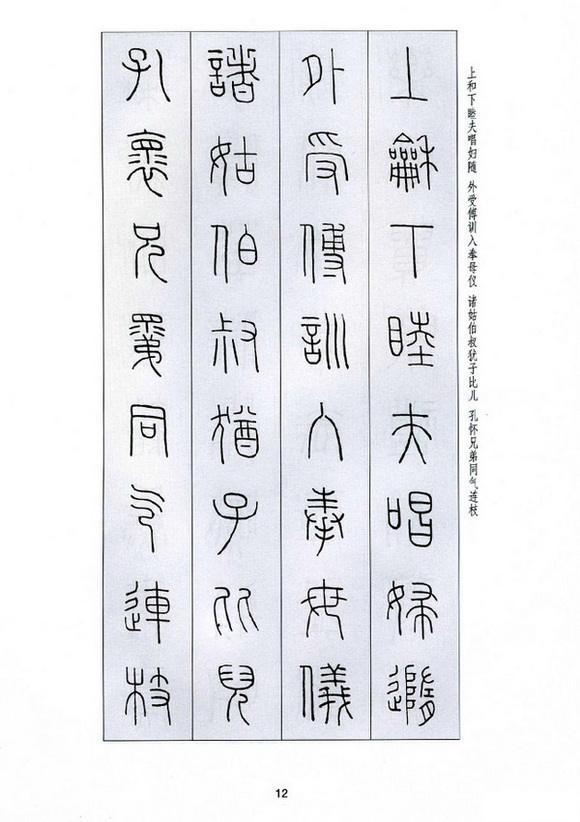 上龢下睦夫唱婦隨
外受傅訓入奉母儀
諸姑伯叔猶子比兒
孔褱兄弟同气連枝
上和下睦夫唱妇随 外受傅训入奉母仪 诸姑伯叔犹子比儿 孔怀兄弟同气连枝
12